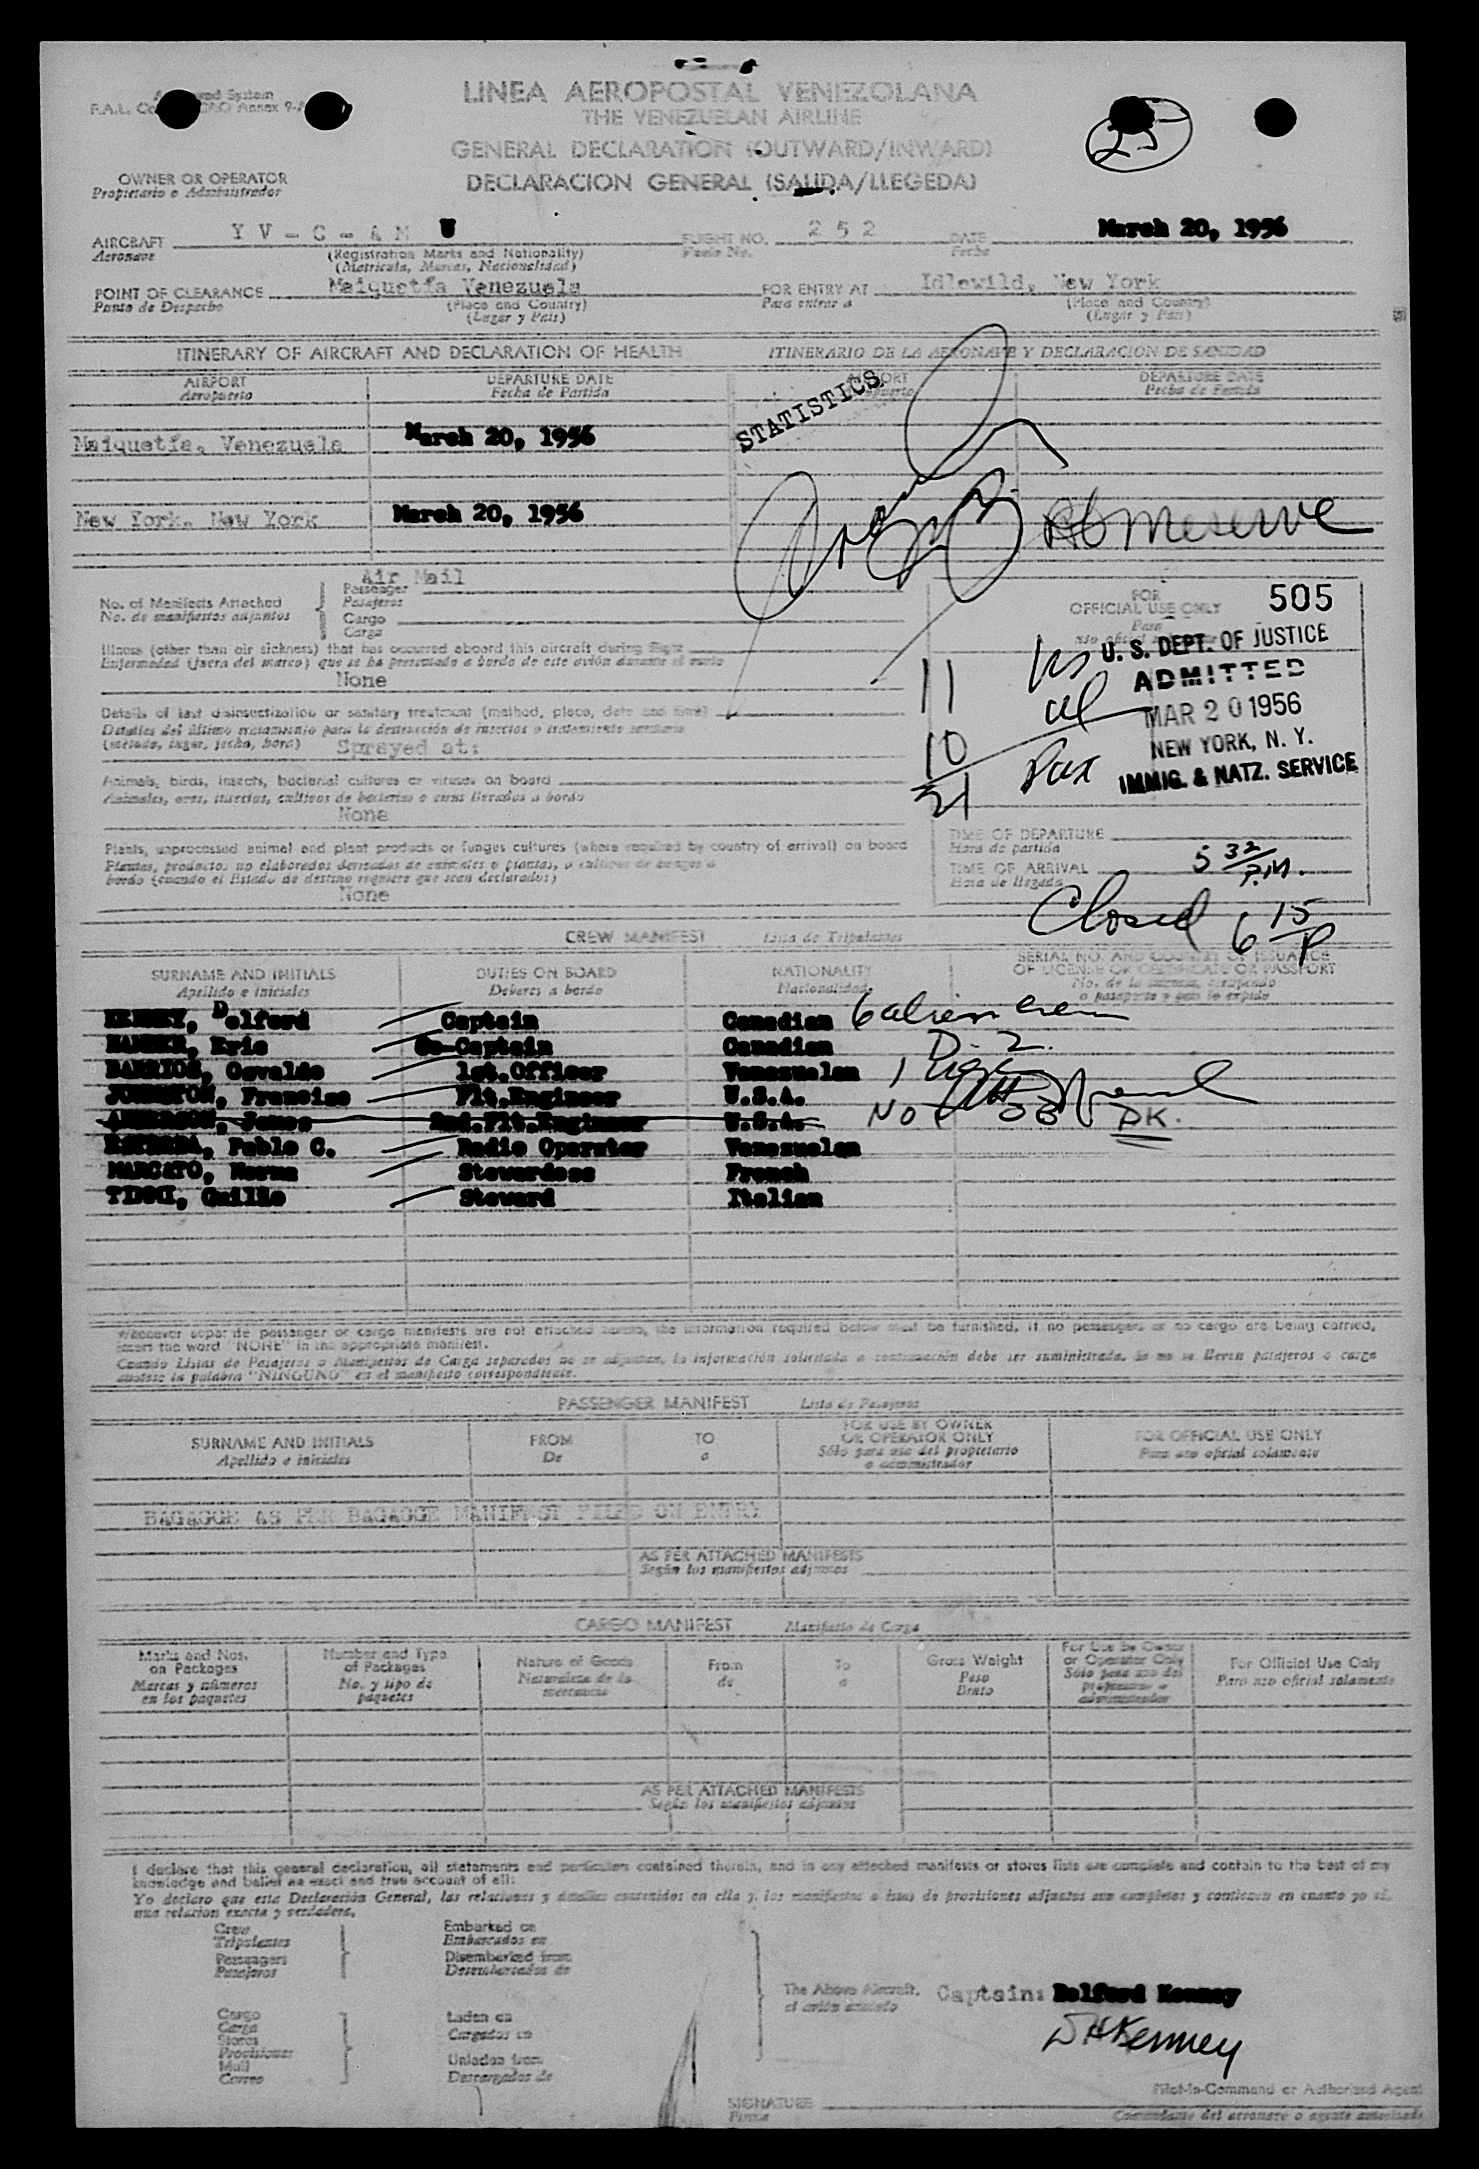 LINEA AEROPOSTAL VENEZOLANA
THE VENEZUELAN AIRLINE
GENERAL DECLARATION (OUTWARD/INWARD)
DECLARACION GENERAL (SALIDA/LLEGEDA)
F.A.L. Annex 9-
25
OWNER OR OPERATOR
Propietario o Administrador
AIRCRAFT YV-C-AM U FLIGHT NO. 252 DATE March 20, 1956
Aeronave (Registration Marks and Nationality) Fecha
(Matricula, Marcas, Nacionalidad)
POINT OF CLEARANCE Maiquetía Venezuela FOR ENTRY AT Idlewild, New York
Punto de Despacho (Place and Country) Para entrar a (Place and Country)
(Lugar y País) (Lugar y País)
ITINERARY OF AIRCRAFT AND DECLARATION OF HEALTH ITINERARIO DE LA AERONAVE Y DECLARACION DE SANIDAD
AIRPORT DEPARTURE DATE DEPARTURE DATE
Aeropuerto Fecha de Partida Fecha de Partida
STATISTICS
Maiquetía, Venezuela March 20, 1956
New York, New York March 20, 1956
Air Mail
No. of Manifests Attached Passenger
No. de manifiestos adjuntos Pasajeros
Cargo
Carga
FOR
OFFICIAL USE ONLY 505
Para
U. S. DEPT. OF JUSTICE
ADMITTED
MAR 20 1956
NEW YORK, N. Y.
IMMIG. & NATZ. SERVICE
11 US
10 al
21 Pax
Illness (other than air sickness) that has occurred aboard this aircraft during flight
Enfermedad (fuera del mareo) que se ha presentado a bordo de este avión durante el vuelo
None
Details of last disinsectization or sanitary treatment (method, place, date and time)
Detalles del último tratamiento para la destrucción de insectos o tratamiento sanitario
(método, lugar, fecha, hora) Sprayed at:
Animals, birds, insects, bacterial cultures or viruses on board
Animales, aves, insectos, cultivos de bacterias o virus llevados a bordo
None
Plants, unprocessed animal and plant products or fungus cultures (where required by country of arrival) on board
Plantas, productos no elaborados derivados de animales o plantas, o cultivos de hongos a
bordo (cuando el Estado de destino requiere que sean declarados)
None
TIME OF DEPARTURE
Hora de partida
TIME OF ARRIVAL 5 32 P.M.
Hora de llegada
Closed 6 15 P
CREW MANIFEST Lista de Tripulantes
SURNAME AND INITIALS DUTIES ON BOARD NATIONALITY SERIAL NO. AND COUNTRY OF ISSUANCE
OF LICENSE OR CERTIFICATE OR PASSPORT
Apellido e iniciales Deberes a bordo Nacionalidad
Delford Captain Canadian 6 alien crew
Eric Co-Captain Canadian D-2.
BARRIOS, Osvaldo 1st.Officer Venezuelan 1
JOHNSTON, Francise Flt.Engineer U.S.A.
ANDERSON, James 2nd.Flt.Engineer U.S.A. Not OB DK.
ESTRADA, Pablo C. Radio Operator Venezuelan
MARCATO, Norma Stewardess French
Steward Italian
Whenever separate passenger or cargo manifests are not attached hereto, the information required below must be furnished, if no passengers or no cargo are being carried,
insert the word "NONE" in the appropriate manifest.
Cuando Listas de Pasajeros o Manifiestos de Carga separados no se adjuntan, la información solicitada a continuación debe ser suministrada. Si no se lleven pasajeros o carga
anótese la palabra "NINGUNO" en el manifiesto correspondiente.
PASSENGER MANIFEST Lista de Pasajeros
SURNAME AND INITIALS FROM TO FOR USE BY OWNER OR OPERATOR ONLY FOR OFFICIAL USE ONLY
Apellido e iniciales De a Sólo para uso del propietario o administrador Para uso oficial solamente
BAGAGGE AS PER BAGAGGE MANIFEST FILED ON ENTRY
AS PER ATTACHED MANIFESTS
Según los manifiestos adjuntos
CARGO MANIFEST Manifiesto de Carga
Marks and Nos. on Packages Number and Type of Packages Nature of Goods From To Gross Weight For Use be Owner or Operator Only For Official Use Only
Marcas y números en los paquetes No. y tipo de paquetes Naturaleza de la mercancía de a Peso Bruto Sólo para uso del propietario o administrador Para uso oficial solamente
AS PER ATTACHED MANIFESTS
Según los manifiestos adjuntos
I declare that this general declaration, all statements and particulars contained therein, and in any attached manifests or stores lists are complete and contain to the best of my
knowledge and belief an exact and true account of all:
Yo declaro que esta Declaración General, las relaciones y detalles contenidos en ella y los manifiestos o listas de provisiones adjuntos son completos y contienen en cuanto yo sé,
una relación exacta y verdadera.
Crew Embarked on
Tripulantes Embarcados en
Passengers Disembarked from
Pasajeros Desembarcados de
The Above Aircraft. Captain: Delford Kenney
el avión anotado
Cargo Laden on
Carga Cargados en
Stores
Provisiones
Mail Unladen from
Correo Descargados de
DHKenney
Pilot-in-Command or Authorized Agent
SIGNATURE
Firma Comandante del aeronave o agente autorizado